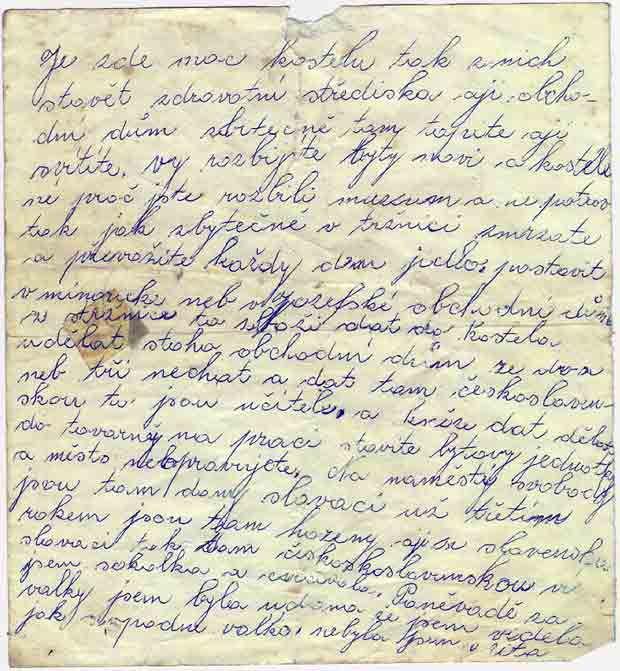 Je zde moc kostelu tak z nich
stavět zdravotní střediska aji obcho-
dní dům zbitečně tam topite aji
svítíte, vy rozbijíte byty novi a kostele
ne proč jste rozbili muzeum a
tak jak zbytečně v tržnici zmrzate
a převážíte každy den jidlo, postavit
v minoricke neb v Jozefské obchodní dům
z tržnice to zboži dat do kostela
udělat stoho obchodni dům ze dva
neb tři nechat a dat tam českosloven-
skou to jsou učitele, a kněze dat dělat
do tovarny na praci stavite bytovy jednotky
a město neopravijete, na naměsty svobody
jsou tam domy slovaci už třetim
rokem jsou tam hozeny aji se slovensk
slovaci tak tam československou
jsem sokolka a cvičivala, Poněvadě za
valky jsem byla udana že jsem viděla
jak dopadne valka, nebyla jsem